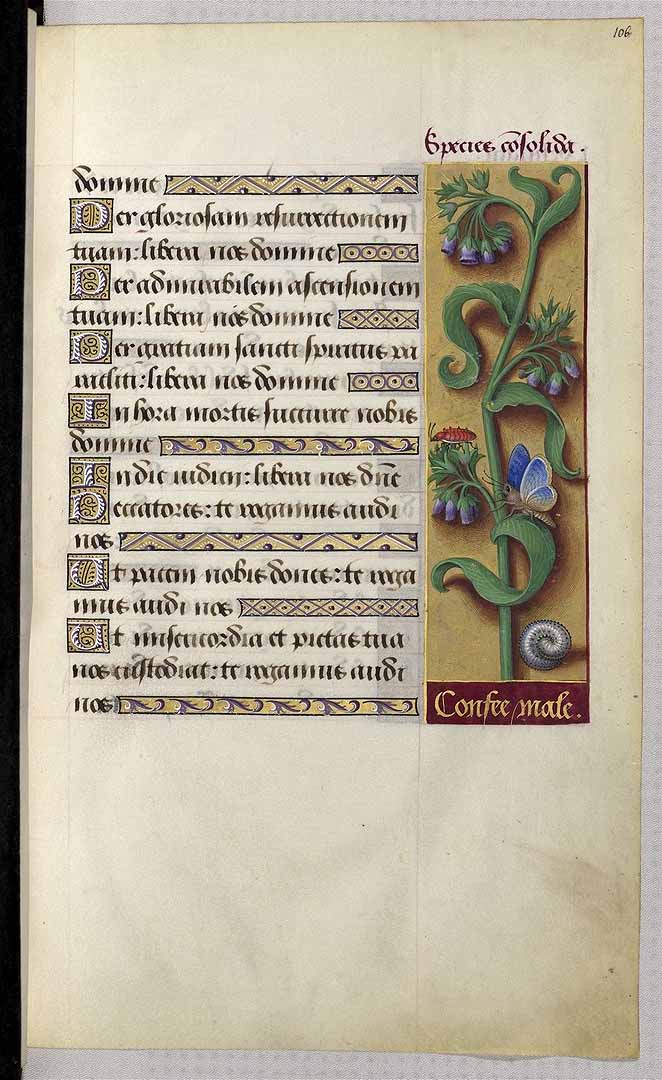 106
Species cōsolida.
domine
Per gloriosam resurrectionem
tuam: libera nos domine
Per admirabilem ascensionem
tuam: libera nos domine
Per gratiam sancti spiritus pa
racliti: libera nos domine
In hora mortis succurre nobis
domine
In die iudicii: libera nos dñe
Peccatores: te rogamus audi
nos
Ut pacem nobis dones: te roga
mus audi nos
Ut misericordia et pietas tua
nos custodiat: te rogamus audi
nos
Consee male.